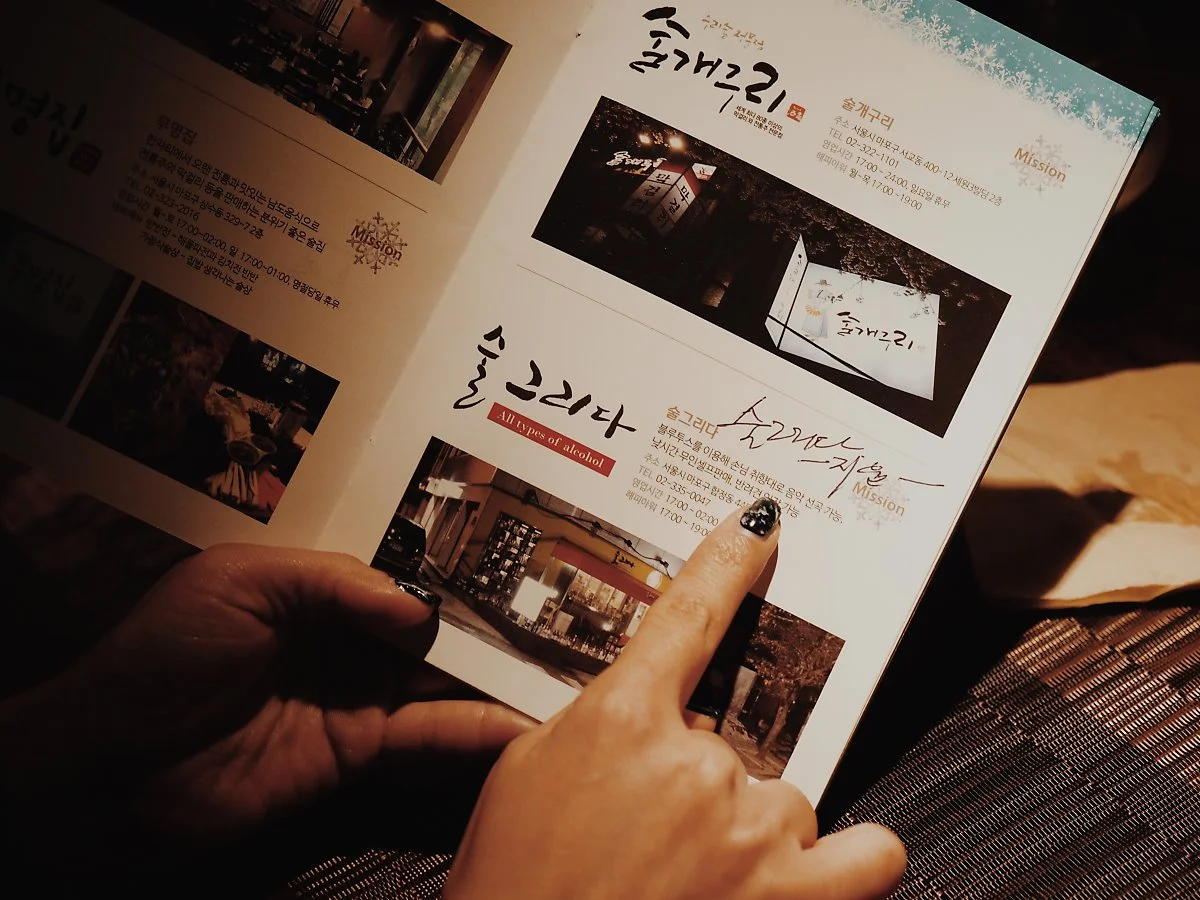 명집
무명집
전통주와 막걸리 등을 판매하는 분위기 좋은 술집
주소 서울시 마포구 상수동 329-7 2층
TEL 02-323-2016
영업시간 월~토 17:00~02:00, 일 17:00~01:00, 명절당일 휴무
반반전 - 해물파전과 김치전 반반
가정식술상 - 집밥 생각나는 술상
Mission
우리술 전문점
술개구리
술개구리
주소 서울시 마포구 서교동 400-12 세원3빌딩 2층
TEL 02-322-1101
영업시간 17:00 ~ 24:00, 일요일 휴무
해피아워 월~목 17:00 ~19:00
Mission
막걸리
술개구리
술그리다
All types of alcohol
술그리다
블루투스를 이용해 손님 취향대로 음악 선곡 가능,
낮시간 무인셀프판매, 반려견 가능
주소 서울시 마포구 합정동
TEL 02-335-0047
영업시간 17:00 ~ 02:00
해피아워 17:00 ~ 19:00
술그리다
Mission